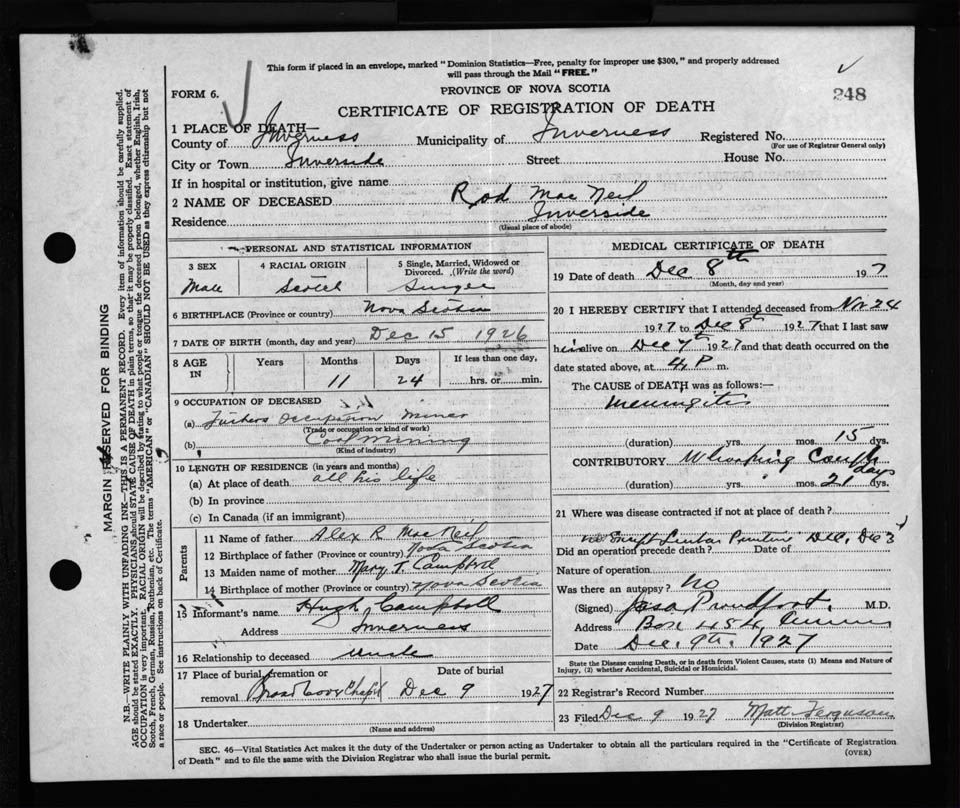 This form if placed in an envelope, marked "Dominion Statistics—Free, penalty for improper use $300," and properly addressed
will pass through the Mail "FREE."
FORM 6.
PROVINCE OF NOVA SCOTIA
248
CERTIFICATE OF REGISTRATION OF DEATH
1 PLACE OF DEATH—
County of Inverness Municipality of Inverness Registered No.
(For use of Registrar General only)
City or Town Inverside Street House No.
If in hospital or institution, give name
2 NAME OF DECEASED Rod MacNeil
Residence Inverside
(Usual place of abode)
PERSONAL AND STATISTICAL INFORMATION
3 SEX 4 RACIAL ORIGIN 5 Single, Married, Widowed or
Divorced. (Write the word)
Male Scotch Single
6 BIRTHPLACE (Province or country) Nova Scotia
7 DATE OF BIRTH (month, day and year) Dec 15 1926
8 AGE Years Months Days If less than one day,
IN 11 24 hrs. or min.
9 OCCUPATION OF DECEASED
(a) Fathers Occupation Miner
(Trade or occupation or kind of work)
(b) Coal Mining
(Kind of industry)
10 LENGTH OF RESIDENCE (in years and months)
(a) At place of death all his life
(b) In province
(c) In Canada (if an immigrant)
Parents
11 Name of father Alex R MacNeil
12 Birthplace of father (Province or country) Nova Scotia
13 Maiden name of mother Mary T. Campbell
14 Birthplace of mother (Province or country) Nova Scotia
15 Informant's name Hugh Campbell
Address Inverness
16 Relationship to deceased Uncle
17 Place of burial, cremation or Date of burial
removal Broad Cove Chapel Dec 9 1927
18 Undertaker
(Name and address)
MEDICAL CERTIFICATE OF DEATH
19 Date of death Dec 8th 1927
(Month, day and year)
20 I HEREBY CERTIFY that I attended deceased from Nov 24
1927 to Dec 8th 1927 that I last saw
him alive on Dec 7th 1927 and that death occurred on the
date stated above, at 4 P m.
The CAUSE of DEATH was as follows:—
Meningitis
(duration) yrs. mos. 15 dys.
CONTRIBUTORY Whooping Cough
(duration) yrs. mos. 21 days dys.
21 Where was disease contracted if not at place of death?
Dec, Dec 3
Did an operation precede death? Date of
Nature of operation
Was there an autopsy? No
(Signed) Proudfoot, M.D.
Address Box 454
Date Dec. 9th. 1927
State the Disease causing Death, or in death from Violent Causes, state (1) Means and Nature of
Injury, (2) whether Accidental, Suicidal or Homicidal.
22 Registrar's Record Number
23 Filed Dec 9 1927 Matt Ferguson
(Division Registrar)
SEC. 46—Vital Statistics Act makes it the duty of the Undertaker or person acting as Undertaker to obtain all the particulars required in the "Certificate of Registration
of Death" and to file the same with the Division Registrar who shall issue the burial permit. (OVER)
MARGIN RESERVED FOR BINDING
N.B.—WRITE PLAINLY WITH UNFADING INK—THIS IS A PERMANENT RECORD. Every item of information should be carefully supplied.
AGE should be stated EXACTLY. PHYSICIANS should STATE CAUSE OF DEATH in plain terms, so that it may be properly classified. Exact statement of
OCCUPATION is very important. RACIAL ORIGIN will be described by stating to what people or tongue the deceased person belonged, whether English, Irish,
Scotch, French, German, Russian, Ruthenian, etc. The terms "AMERICAN" or "CANADIAN" SHOULD NOT BE USED as they express citizenship but not
a race or people. See instructions on back of Certificate.